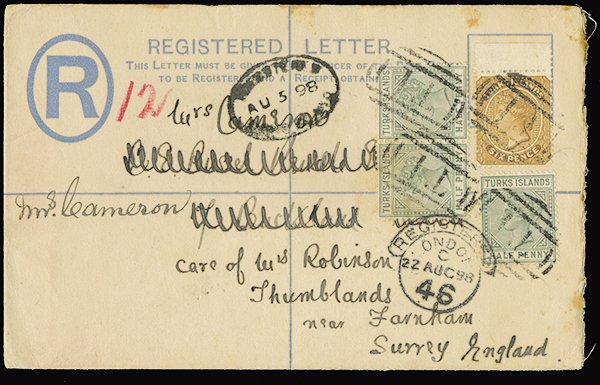 REGISTERED LETTER.
THIS LETTER MUST BE GIVEN TO AN OFFICER OF THE
TO BE REGISTERED AND A RECEIPT OBTAINED
R
121
AU 5 98
Mrs Cameron
Mrs Cameron
care of Mrs Robinson
Thumblands
near Farnham
Surrey England.
TURKS ISLANDS
HALF PENNY
TURKS ISLANDS
SIX PENCE
TURKS ISLANDS
HALF PENNY
T.I.
REGISTERED
LONDON
C
22 AUG 98
46